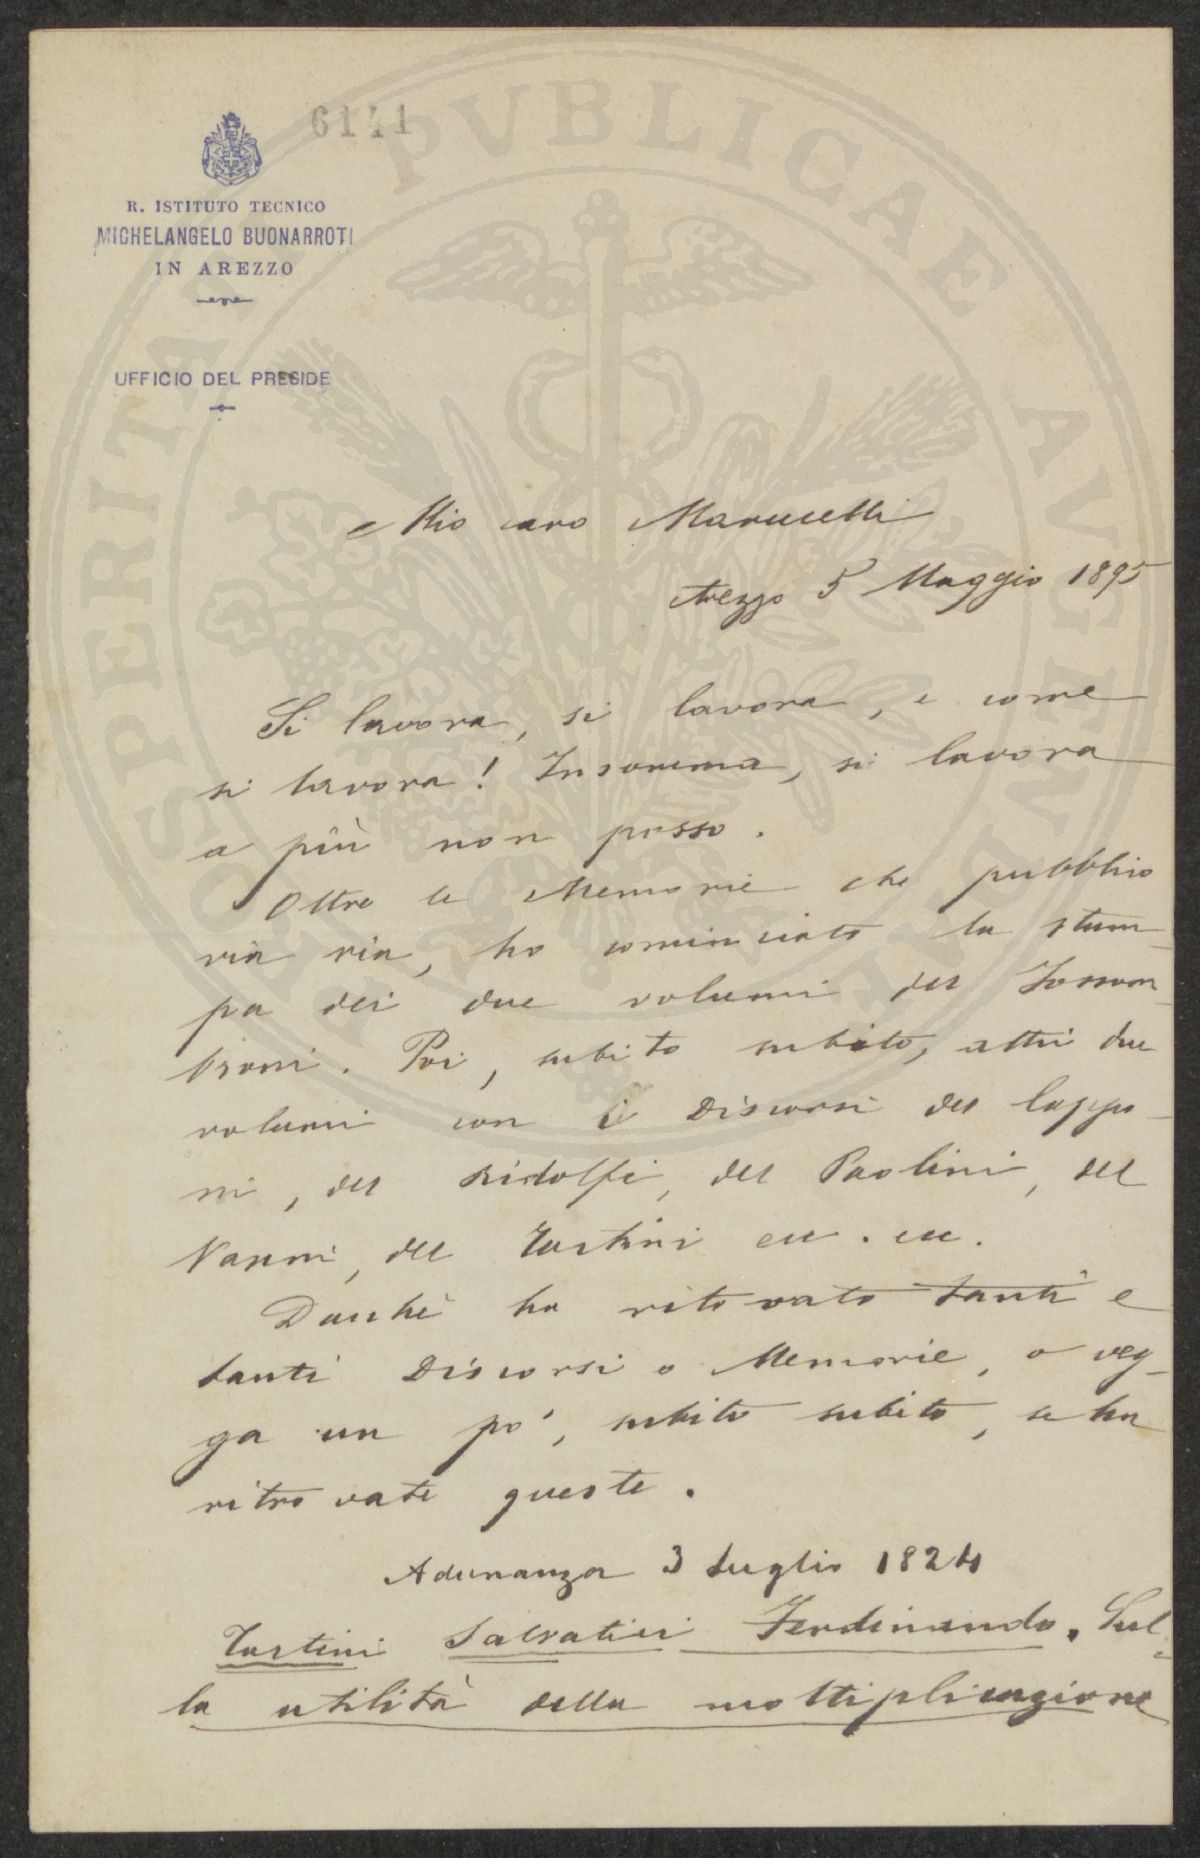 6141
R. ISTITUTO TECNICO
MICHELANGELO BUONARROTI
IN AREZZO
UFFICIO DEL PRESIDE
PROSPERITATI PUBLICAE AUGENDAE
Mio caro Marucelli
Arezzo 5 Maggio 1895
Si lavora, si lavora, e come
si lavora! Insomma, si lavora
a più non posso.
Oltre le Memorie che pubblico
via via, ho cominciato la stam-
pa dei due volumi del Fossom-
broni. Poi, subito subito, altri due
volumi con i Discorsi del Cappo-
ni, del Ridolfi, del Paolini, del
Nanni, del Tartini ecc. ecc.
Danhè ha ritovato tanti e
tanti Discorsi o Memorie, o veg-
ga un po', subito subito, se ha
ritrovate queste.
Adunanza 3 Luglio 1824
Tartini Salvatici Ferdinando. Sul-
la utilità della moltiplicazione